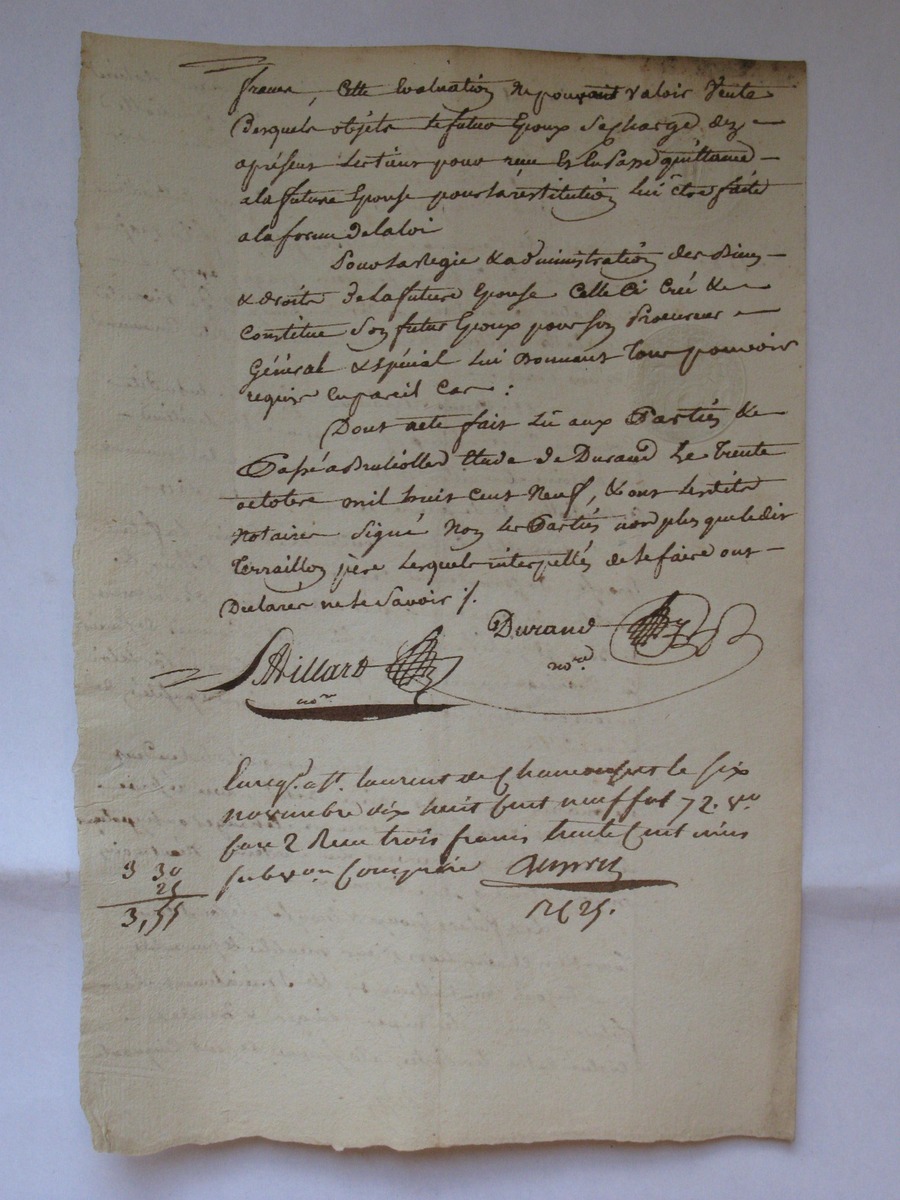 francs, cette Evaluation ne pouvant valoir Vente
Desquels objets le futur Epoux Se charge dez
apresent Les tient pour reçu & En passe quittance
a la future Epouse pour La restitution Lui être faite
a la forme de la loi
Sous La Regie & administration des Biens
& droits de La future Epouse Celle Ci Crée &
Constitue Son futur Epoux pour Son Procureur
Général & spécial Lui Donnant tour pouvoir
requis En pareil Cas :
Dont acte fait Lû aux Parties &
Passé a Brulliolles Etude de Durand Le trente
octobre mil huit Cent Neuf, & ont Lesdits
Notaires Signé Non Les Parties non plus que ledit
Terraillon père Lesquels interpellés de le faire ont
Declarer ne le Savoir /.
Durand
nore
Hillard
nore
Enregé a St. laurent de Chamousset le six
novembre dix huit Cent neuf fol 72. vo
Case 2 Reçu trois francs trente Centimes
subvon Comprise
3 30
25
3,55